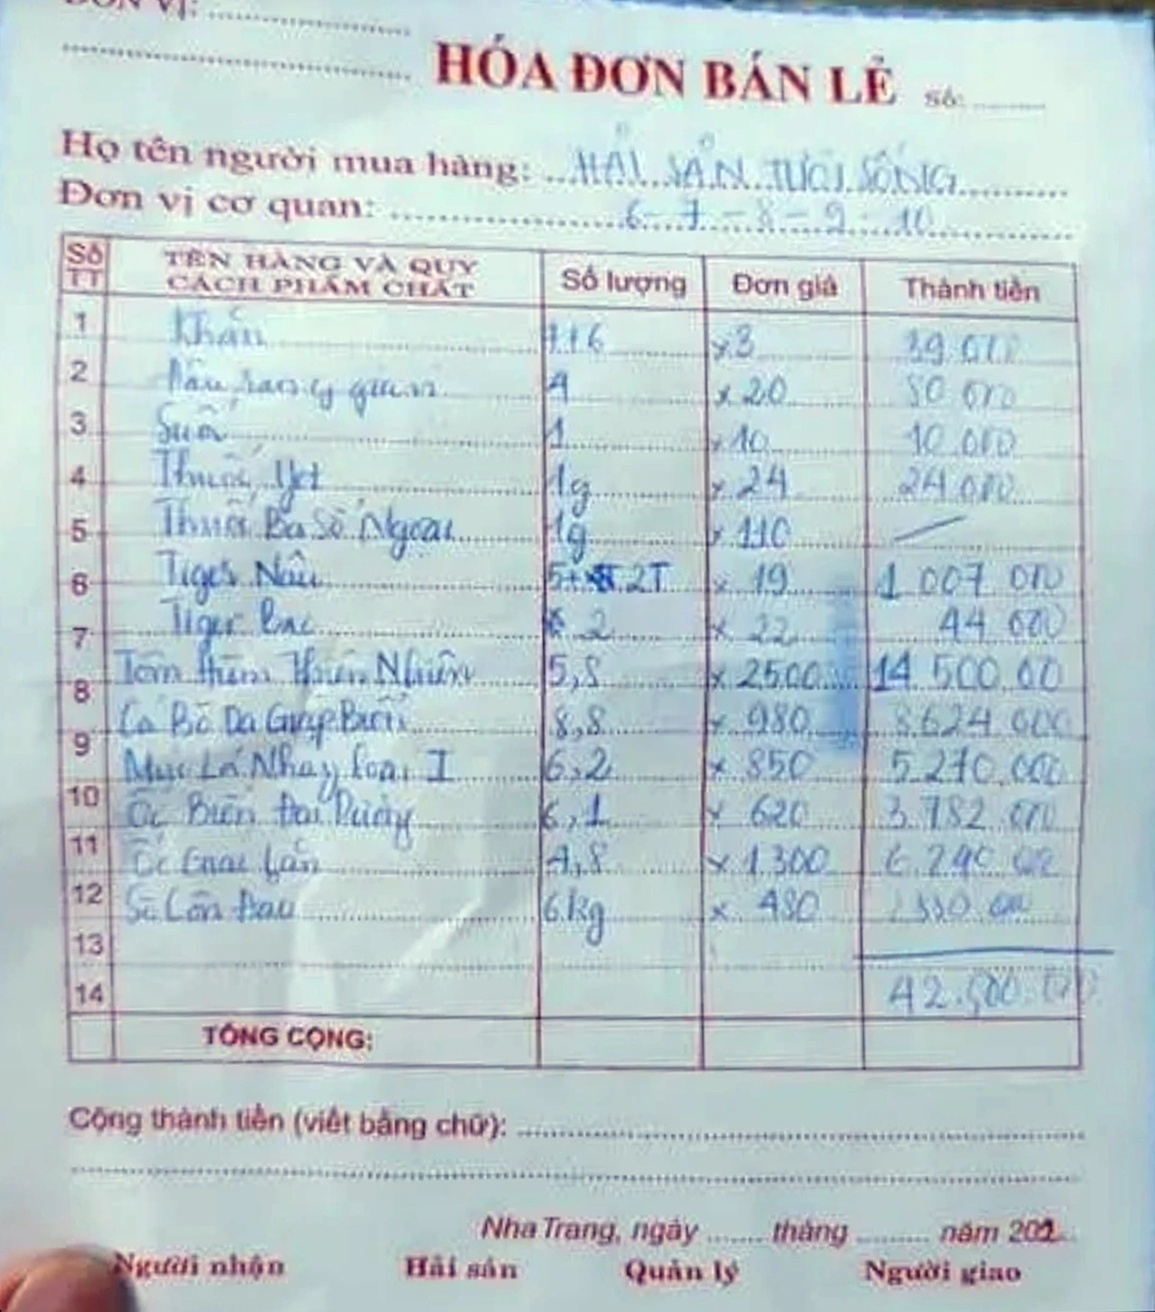 ĐƠN VỊ:
HÓA ĐƠN BÁN LẺ Số:
Họ tên người mua hàng: HẢI SẢN TƯƠI SỐNG
Đơn vị cơ quan: 6-7-8-9-10
Số TT TÊN HÀNG VÀ QUY CÁCH PHẨM CHẤT Số lượng Đơn giá Thành tiền
1 Khăn 7+6 x3 39.000
2 4 x 20 80 000
3 Suối 1 x 10 10.000
4 Thuốc Jet 1g x 24 24.000
5 Thuốc Ba Số Ngoại 1g x 110
6 Tiger Nâu 5+ 2T x 19 1 007 000
7 Tiger Bạc 2 x 22 44 000
8 Tôm Hùm Thiên Nhiên 5,8 x 2500 14 500.00
9 Cá Bò Da Giáp Biển 8,8 x 980 8624 000
10 Mực Lá Nháy Loại I 6,2 x 850 5.270.000
11 Ốc Biển Đại Dương 6,1 x 620 3.782.000
12 Ốc Lán 4,8 x 1.300 6.240
13 Sò Lông 6kg x 480
14 42.500.000
TỔNG CỘNG:
Cộng thành tiền (viết bằng chữ):
Nha Trang, ngày tháng năm 202
Người nhận Hải sản Quản lý Người giao